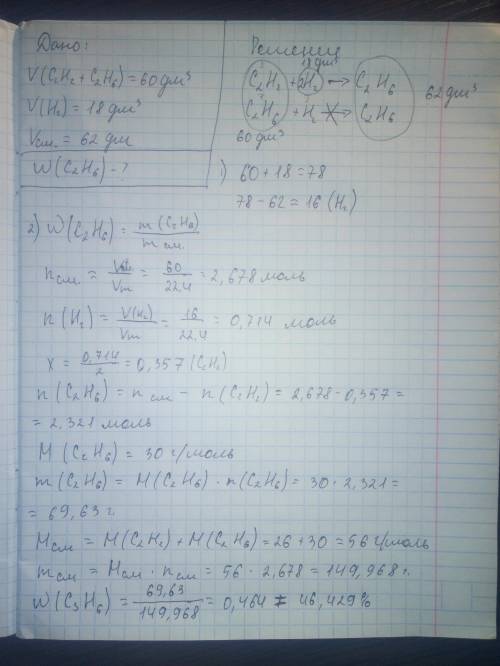 Дано:
V(C₂H₂ + C₂H₆) = 60 дм³
V(H₂) = 18 дм³
Vсм. = 62 дм
W(C₂H₆) - ?
Решение
18 дм³
C₂H₂ + 2H₂ → C₂H₆
62 дм³
C₂H₆ + H₂ → C₂H₆
60 дм³
1) 60 + 18 = 78
78 - 62 = 16 (H₂)
2) W(C₂H₆) = m(C₂H₆) / m см.
n см. = Vсм / Vm = 60 / 22,4 = 2,678 моль
n(H₂) = V(H₂) / Vm = 16 / 22,4 = 0,714 моль
x = 0,714 / 2 = 0,357 (C₂H₂)
n(C₂H₆) = n см - n(C₂H₂) = 2,678 - 0,357 =
= 2,321 моль
M(C₂H₆) = 30 г/моль
m(C₂H₆) = M(C₂H₆) · n(C₂H₆) = 30 · 2,321 =
= 69,63 г.
Mсм = M(C₂H₂) + M(C₂H₆) = 26 + 30 = 56 г/моль
mсм = Mсм · nсм = 56 · 2,678 = 149,968 г.
W(C₂H₆) = 69,63 / 149,968 = 0,464 = 46,429%